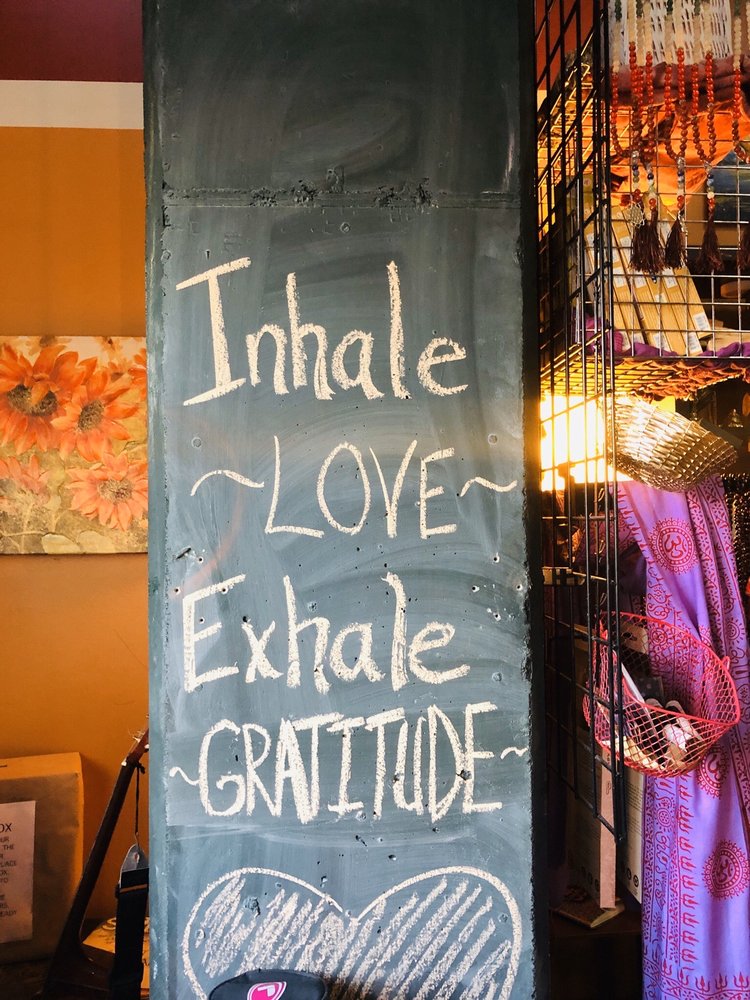 Inhale
~LOVE~
Exhale
~GRATITUDE~